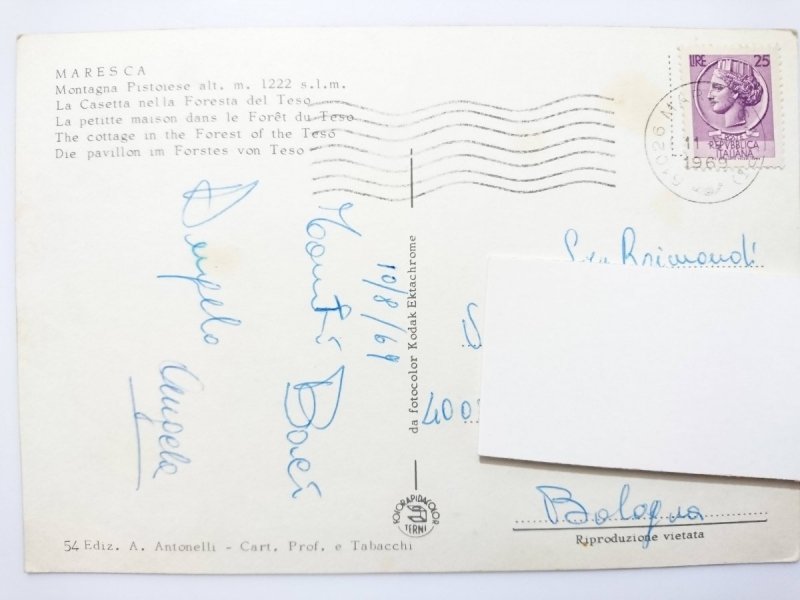 MARESCA
Montagna Pistoiese alt. m. 1222 s.l.m.
La Casetta nella Foresta del Teso
La petitte maison dans le Forêt du Teso
The cottage in the Forest of the Teso
Die pavillon im Forstes von Teso
LIRE 25
REPVBBLICA
ITALIANA
51026
11
1969
10/8/69
Tanti Baci
Angelo
Angela
da fotocolor Kodak Ektachrome
Raimondi
S
400
Bologna
Riproduzione vietata
FOTORAPIDACOLOR
TERNI
54 Ediz. A. Antonelli - Cart. Prof. e Tabacchi